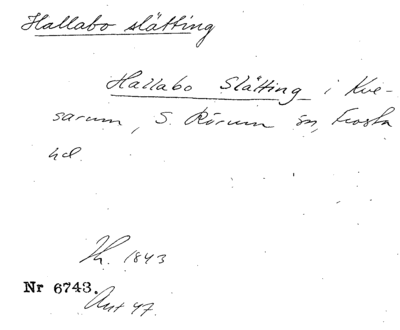 Hallabo slätting
Hallabo Slätting i Kve-
sarum, S. Rörum sn, Frosta
hd
Th. 1843
Nr 6743.
Ant 47.